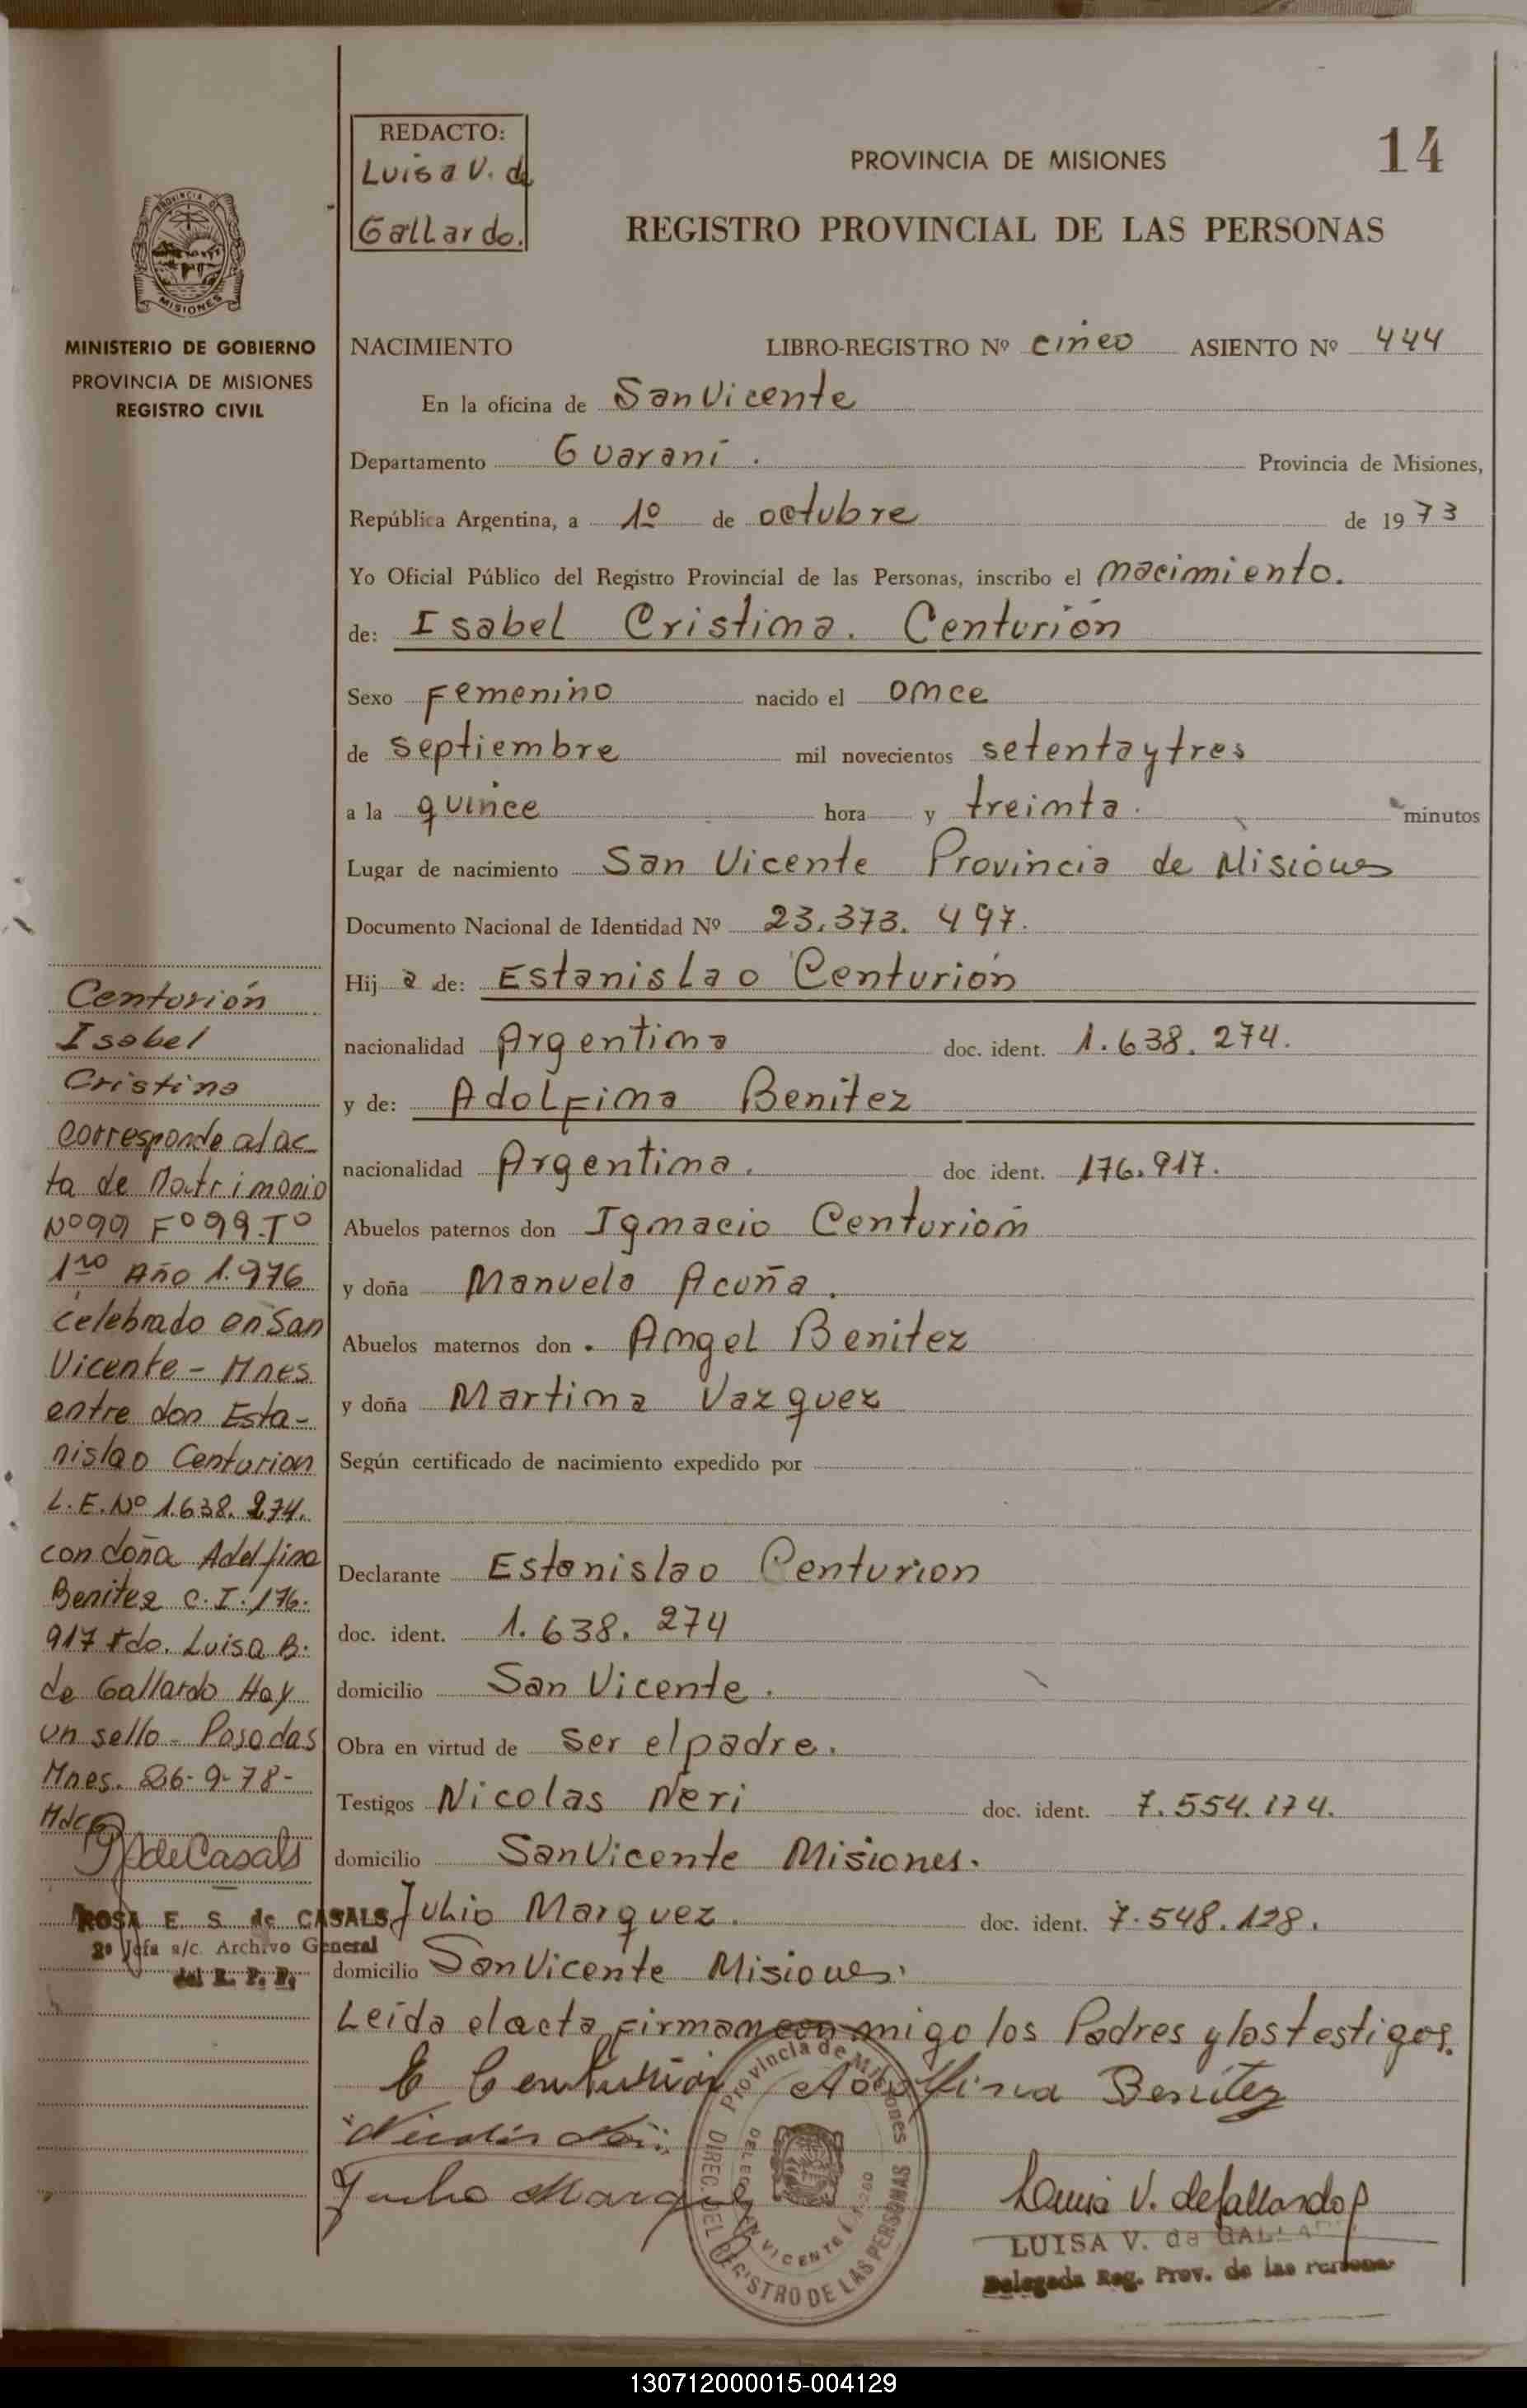 REDACTO:
Luisa V. de
Gallardo.
PROVINCIA DE MISIONES
14
REGISTRO PROVINCIAL DE LAS PERSONAS
PROVINCIA DE
MISIONES
MINISTERIO DE GOBIERNO
PROVINCIA DE MISIONES
REGISTRO CIVIL
NACIMIENTO LIBRO-REGISTRO Nº cinco ASIENTO Nº 444
En la oficina de San Vicente
Departamento Guaraní. Provincia de Misiones,
República Argentina, a 1º de octubre de 1973
Yo Oficial Público del Registro Provincial de las Personas, inscribo el nacimiento.
de: Isabel Cristina. Centurión
Sexo Femenino nacido el once
de septiembre mil novecientos setenta y tres
a la quince hora y treinta. minutos
Lugar de nacimiento San Vicente Provincia de Misiones
Documento Nacional de Identidad Nº 23.373.497.
Hija de: Estanislao Centurión
nacionalidad Argentina doc. ident. 1.638.274.
y de: Adolfina Benitez
nacionalidad Argentina. doc ident. 176.917.
Abuelos paternos don Ignacio Centurión
y doña Manuela Acuña.
Abuelos maternos don . Angel Benitez
y doña Martina Vazquez
Según certificado de nacimiento expedido por
Declarante Estanislao Centurion
doc. ident. 1.638.274
domicilio San Vicente.
Obra en virtud de ser el padre.
Testigos Nicolas Neri doc. ident. 7.554.174.
domicilio San Vicente Misiones.
Julio Marquez. doc. ident. 7.548.128.
domicilio San Vicente Misiones.
Leída el acta, firman con migo los Padres y los testigos.
E Centurión Adolfina Benitez
Nicolás Neri
Julio Marquez
Luisa V. de Gallardo
LUISA V. de GALLA
Delegada Reg. Prov. de las Persona
Provincia de Misiones
DIREC. DEL REGISTRO DE LAS PERSONAS
Centurión
Isabel
Cristina
Corresponde al ac
ta de Matrimonio
Nº 99 Fº 99 Tº
1ro Año 1.976
celebrado en San
Vicente - Mnes
entre don Esta-
nislao Centurion
L.E. Nº 1.638.274.
con doña Adelfina
Benitez C.I. 176.
917 Fdo. Luisa B.
de Gallardo Hay
un sello - Posadas
Mnes. 26-9-78-
MdeG
de Casals
ROSA E. S. de CASALS
2º Jefa a/c. Archivo General
del R. P. P.
130712000015-004129